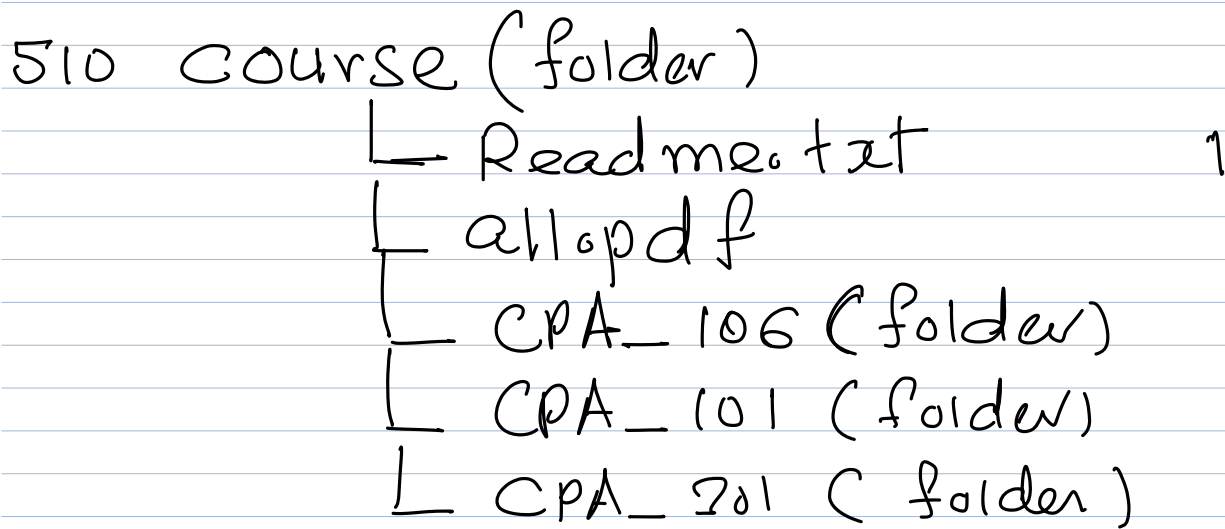 510 course (folder)
Readme.txt 1
all.pdf
CPA_106 (folder)
CPA_101 (folder)
CPA_201 (folder)